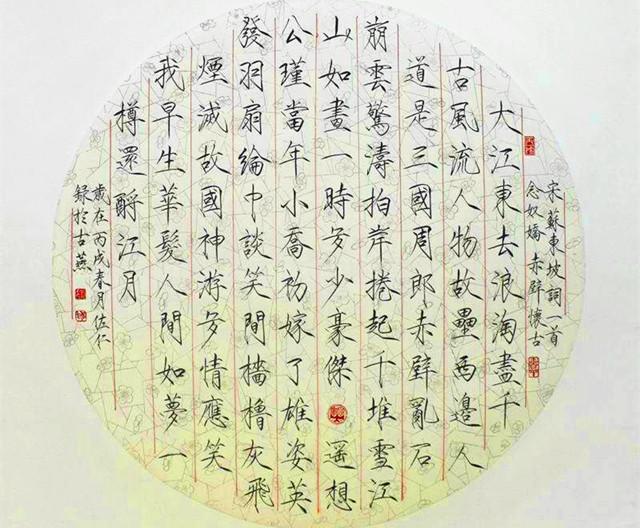 宋蘇東坡詞一首
念奴嬌赤壁懷古
大江東去浪淘盡千
古風流人物故壘西邊人
道是三國周郎赤壁亂石
崩雲驚濤拍岸捲起千堆雪江
山如畫一時多少豪傑遥想
公瑾當年小喬初嫁了雄姿英
發羽扇綸巾談笑間檣櫓灰飛
煙滅故國神游多情應笑
我早生華髮人間如夢一
樽還酹江月
歲在丙戌春月佐仁
録於古燕